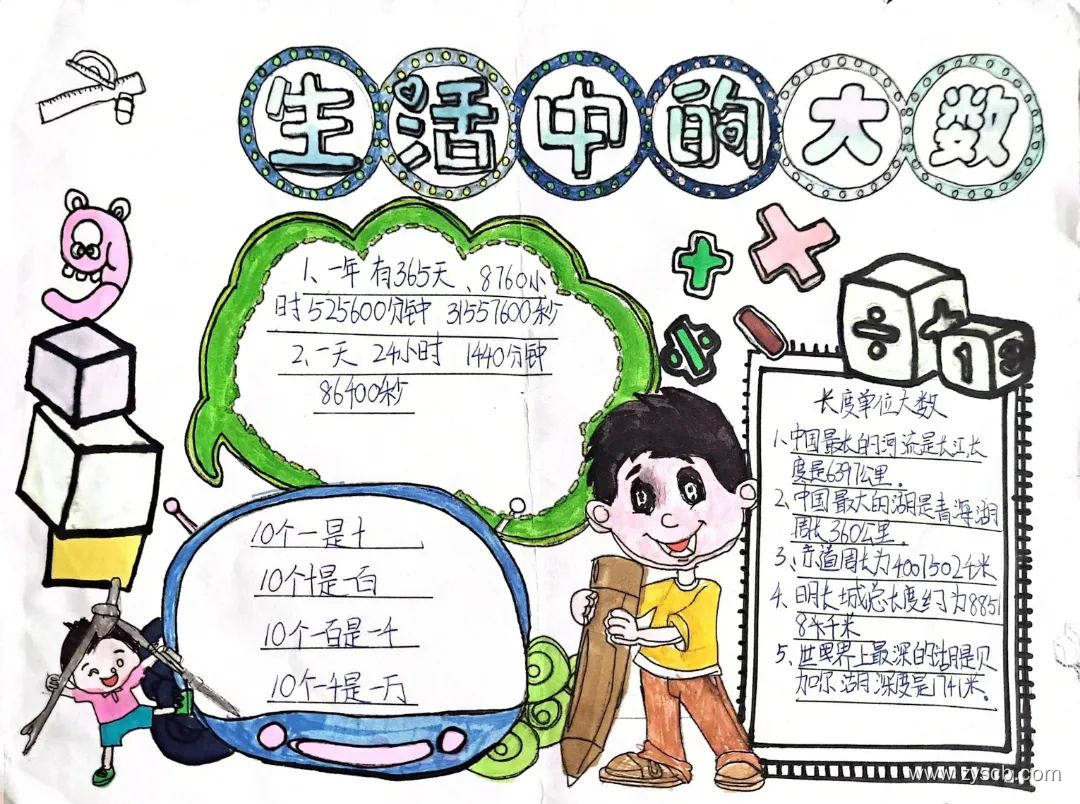 生活中的大数
1、一年有365天、8760小
时525600分钟 31557600秒
2、一天 24小时 1440分钟
86400秒
10个一是十
10个十是一百
10个一百是一千
10个一千是一万
长度单位大数
1、中国最长的河流是长江长
度是6397公里.
2、中国最大的湖是青海湖
周长360公里.
3、赤道周长为40075024米
4、明长城总长度约为8851
8千米
5、世界上最深的湖是贝
加尔湖深度是1741米.
9
1 3
www.zyscb.com